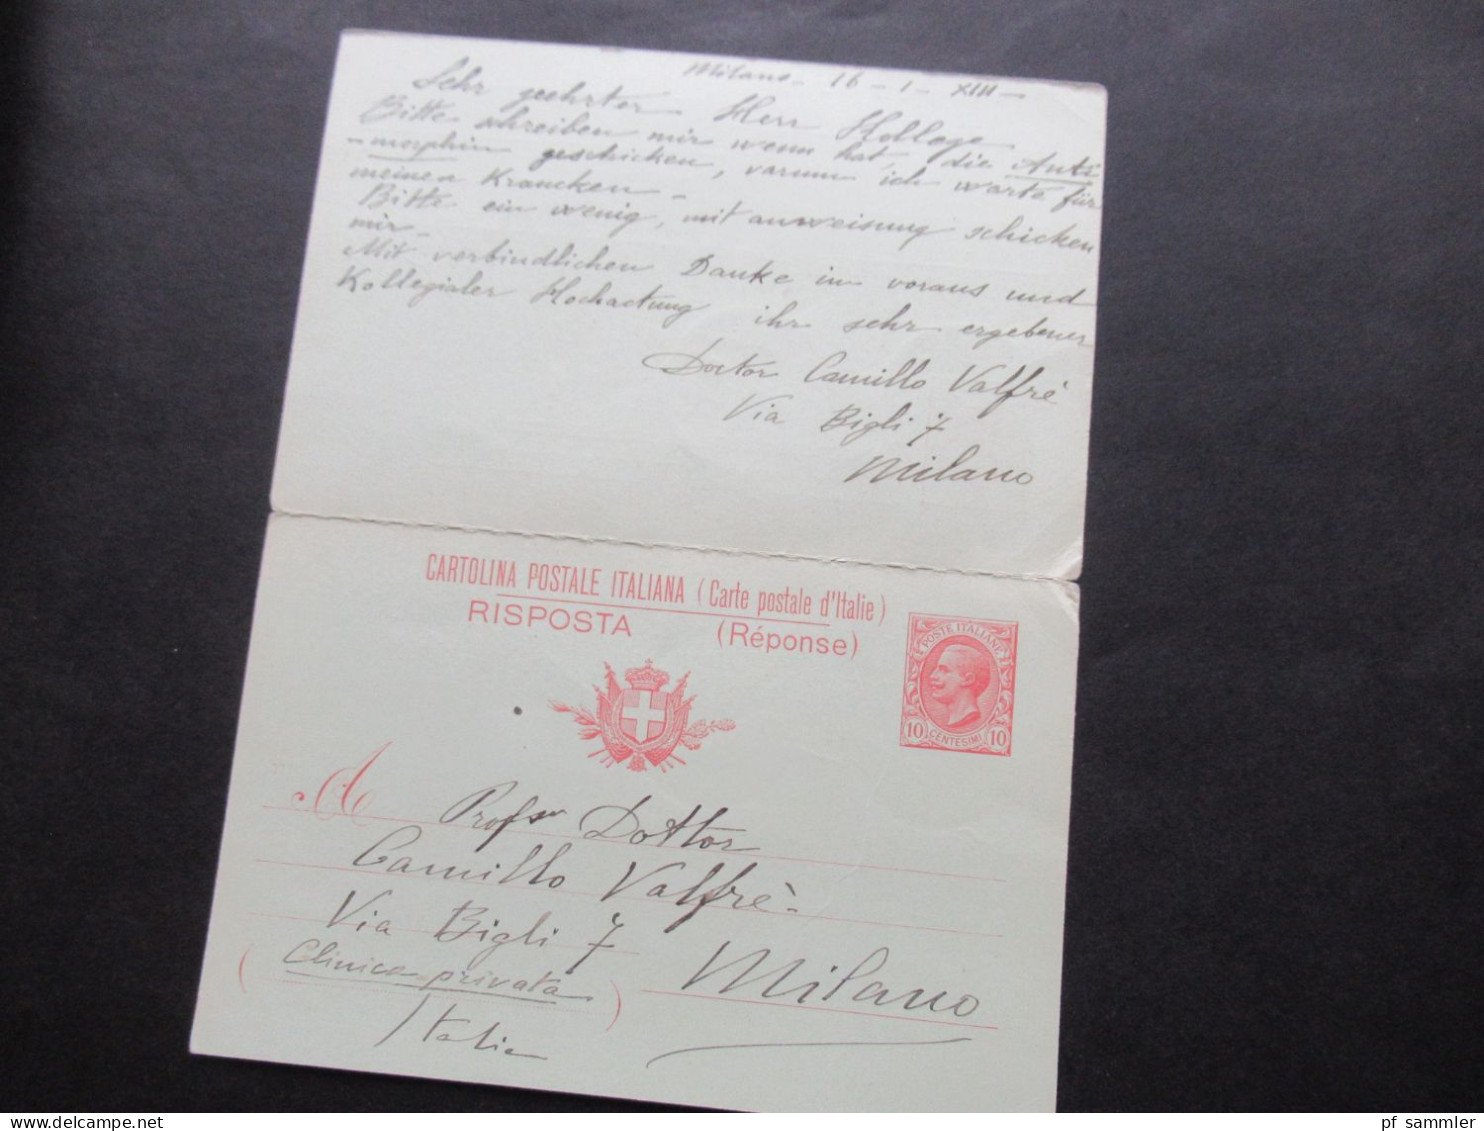 Milano - 16 - 1 - XIII -
Sehr geehrter Herr Kollege
Bitte schreiben mir wenn hat, die Anti
-morphin geschicken, varum ich warte für
meinen Krancken -
Bitte ein wenig, mit anweisung schicken
mir -
Mit verbindlichen Danke im voraus und
Kollegialer Hochactung ihr sehr ergebener
Doctor Camillo Valfrè
Via Bigli 7
Milano
CARTOLINA POSTALE ITALIANA (Carte postale d'Italie)
RISPOSTA (Réponse)
POSTE ITALIANE
10 CENTESIMI 10
A Profsr Dottor
Camillo Valfrè -
Via Bigli 7 Milano
(Clinica privata)
Italia
pf_sammler